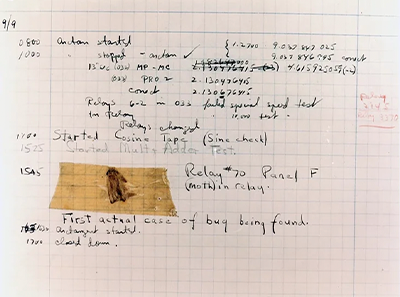 9/9
0800 antan started { 1.2700 9.037 847 025
1000 " stopped - antan ✓ 9.037 846 995 conect
13"uc (032) MP-MC 2.130476415 (-3) 4.615925059(-2)
(033) PRO 2 2.130476415
conect 2.130676415
Relays 6-2 in 033 failed special speed test
in Relay " 10.000 test.
Relays changed
Relay
2145
Relay 3370
1700 Started Cosine Tape (Sine check)
1525 Started Mult+Adder Test.
1545 Relay #70 Panel F
(Moth) in relay.
First actual case of bug being found.
1630 antangent started.
1700 closed down.